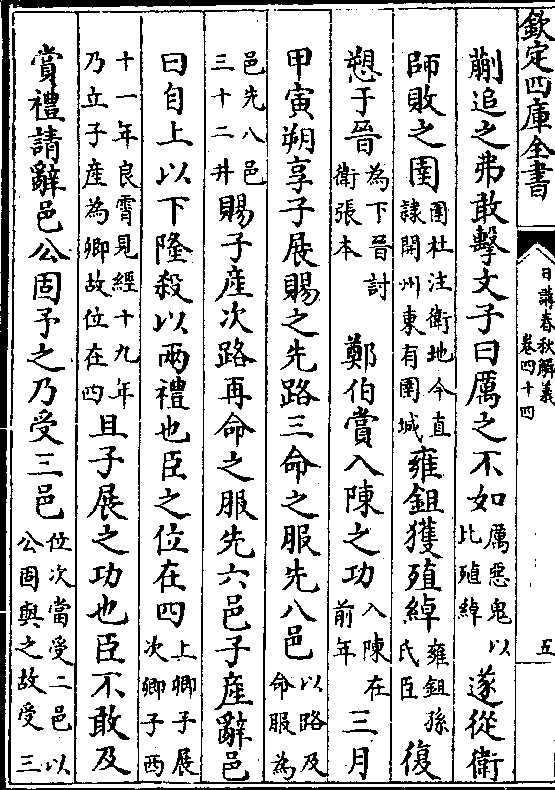 欽定四庫全書
日講春秋解義
卷四十四
五
蒯追之弗敢擊文子曰厲之不如厲惡鬼以比殖綽遂從衛
師敗之圉圉杜注衛地今直隸開州東有圉城雍鉏獲殖綽雍鉏孫氏臣復
愬于晉為下晉討衛張本鄭伯賞入陳之功入陳在前年三月
甲寅朔享子展賜之先路三命之服先八邑以路及命服為
邑先八邑三十二井賜子產次路再命之服先六邑子產辭邑
曰自上以下隆殺以兩禮也臣之位在四上卿子展次卿子西
十一年良霄見經十九年乃立子產為卿故位在四且子展之功也臣不敢及
賞禮請辭邑公固予之乃受三邑位次當受二邑以公固與之故受三